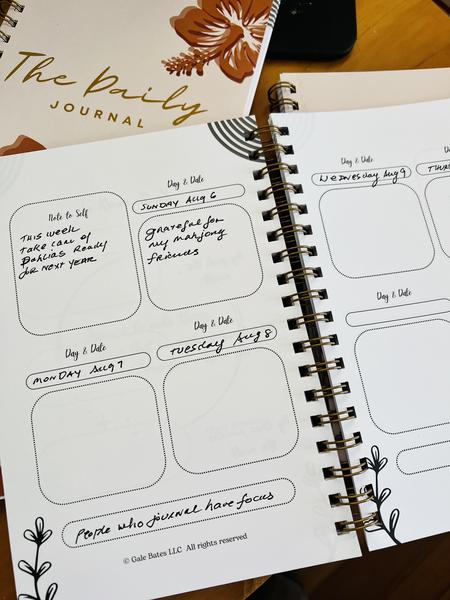 The Daily
JOURNAL
Note to Self
THIS week
Take care of
Dahlias Ready
for NEXT YEAR
Day & Date
SUNDAY Aug 6
grateful for
my mahjong
friends
Day & Date
MONDAY Aug 7
Day & Date
TUESday Aug 8
People who journal have focus
© Gale Bates LLC All rights reserved
Day & Date
WEDNESDAY Aug 9
Day & Date